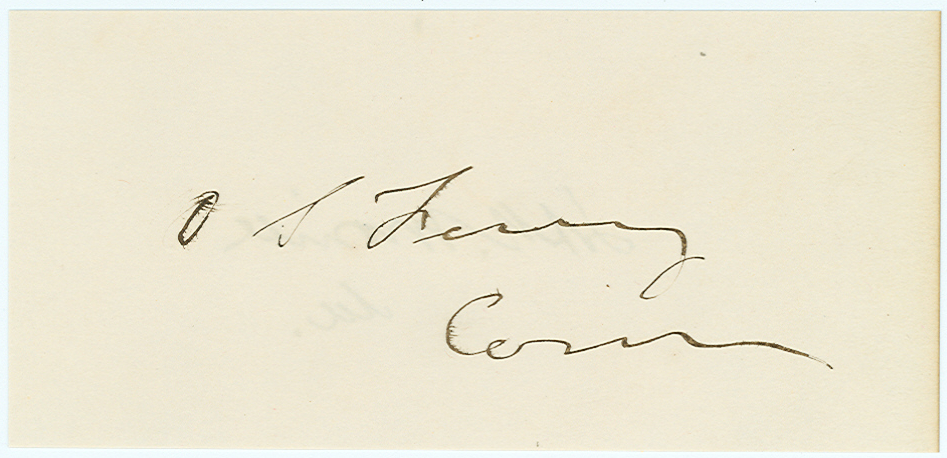 O S Ferry
Conn